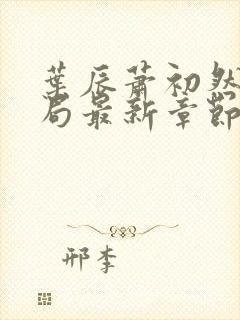 葉辰蕭初然
局最新章節
邢李